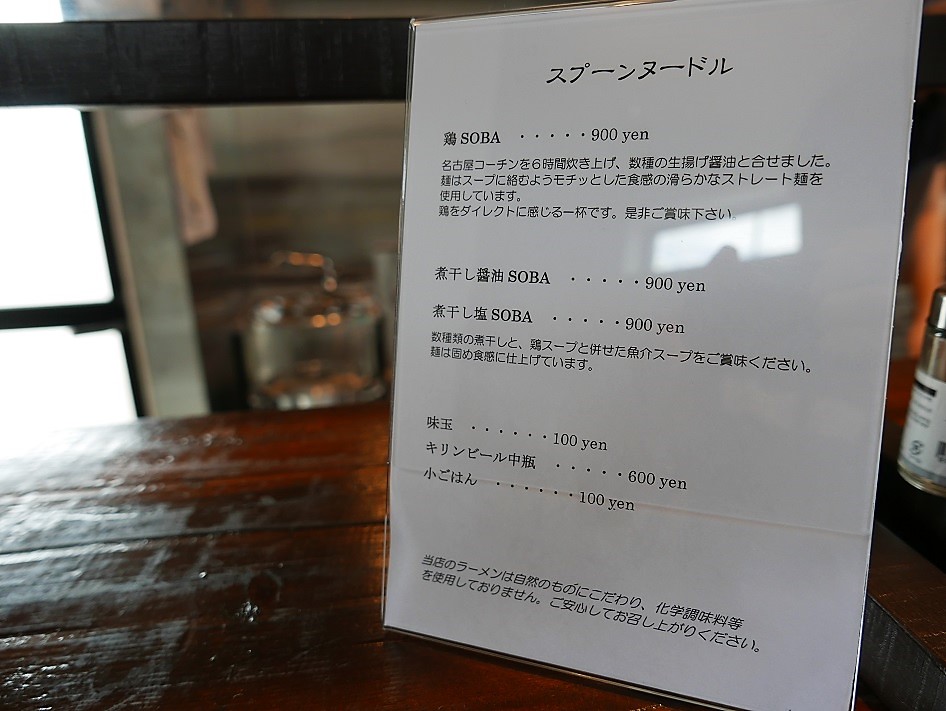 スプーンヌードル
鶏SOBA ・・・・・900 yen
名古屋コーチンを6時間炊き上げ、数種の生揚げ醤油と合せました。
麺はスープに絡むようモチッとした食感の滑らかなストレート麺を
使用しています。
鶏をダイレクトに感じる一杯です。是非ご賞味下さい。
煮干し醤油SOBA ・・・・・900 yen
煮干し塩SOBA ・・・・・900 yen
数種類の煮干しと、鶏スープと併せた魚介スープをご賞味ください。
麺は固め食感に仕上げています。
味玉 ・・・・・・100 yen
キリンビール中瓶 ・・・・・600 yen
小ごはん ・・・・・・100 yen
当店のラーメンは自然のものにこだわり、化学調味料等
を使用しておりません。ご安心してお召し上がりください。